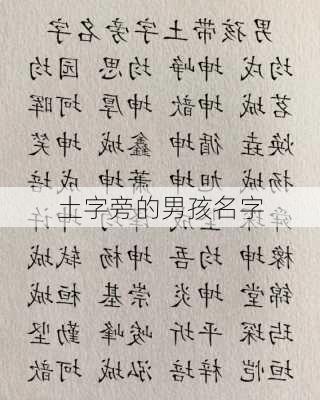 男孩带土字旁名字
均成 坤峰 均思 园均
茗城 坤歆 坤厚 坷晖
焕垚 循坤 鑫城 坤笑
扬城 旭坤 萧坤 成培
土字旁的男孩名字
橡坤 均吾 坤杨 轼城
锦堂 坤炎 崇基 桓城
玙琛 平圻 峻峰 勤坚
垣恺 梓培 泓城 坷歆